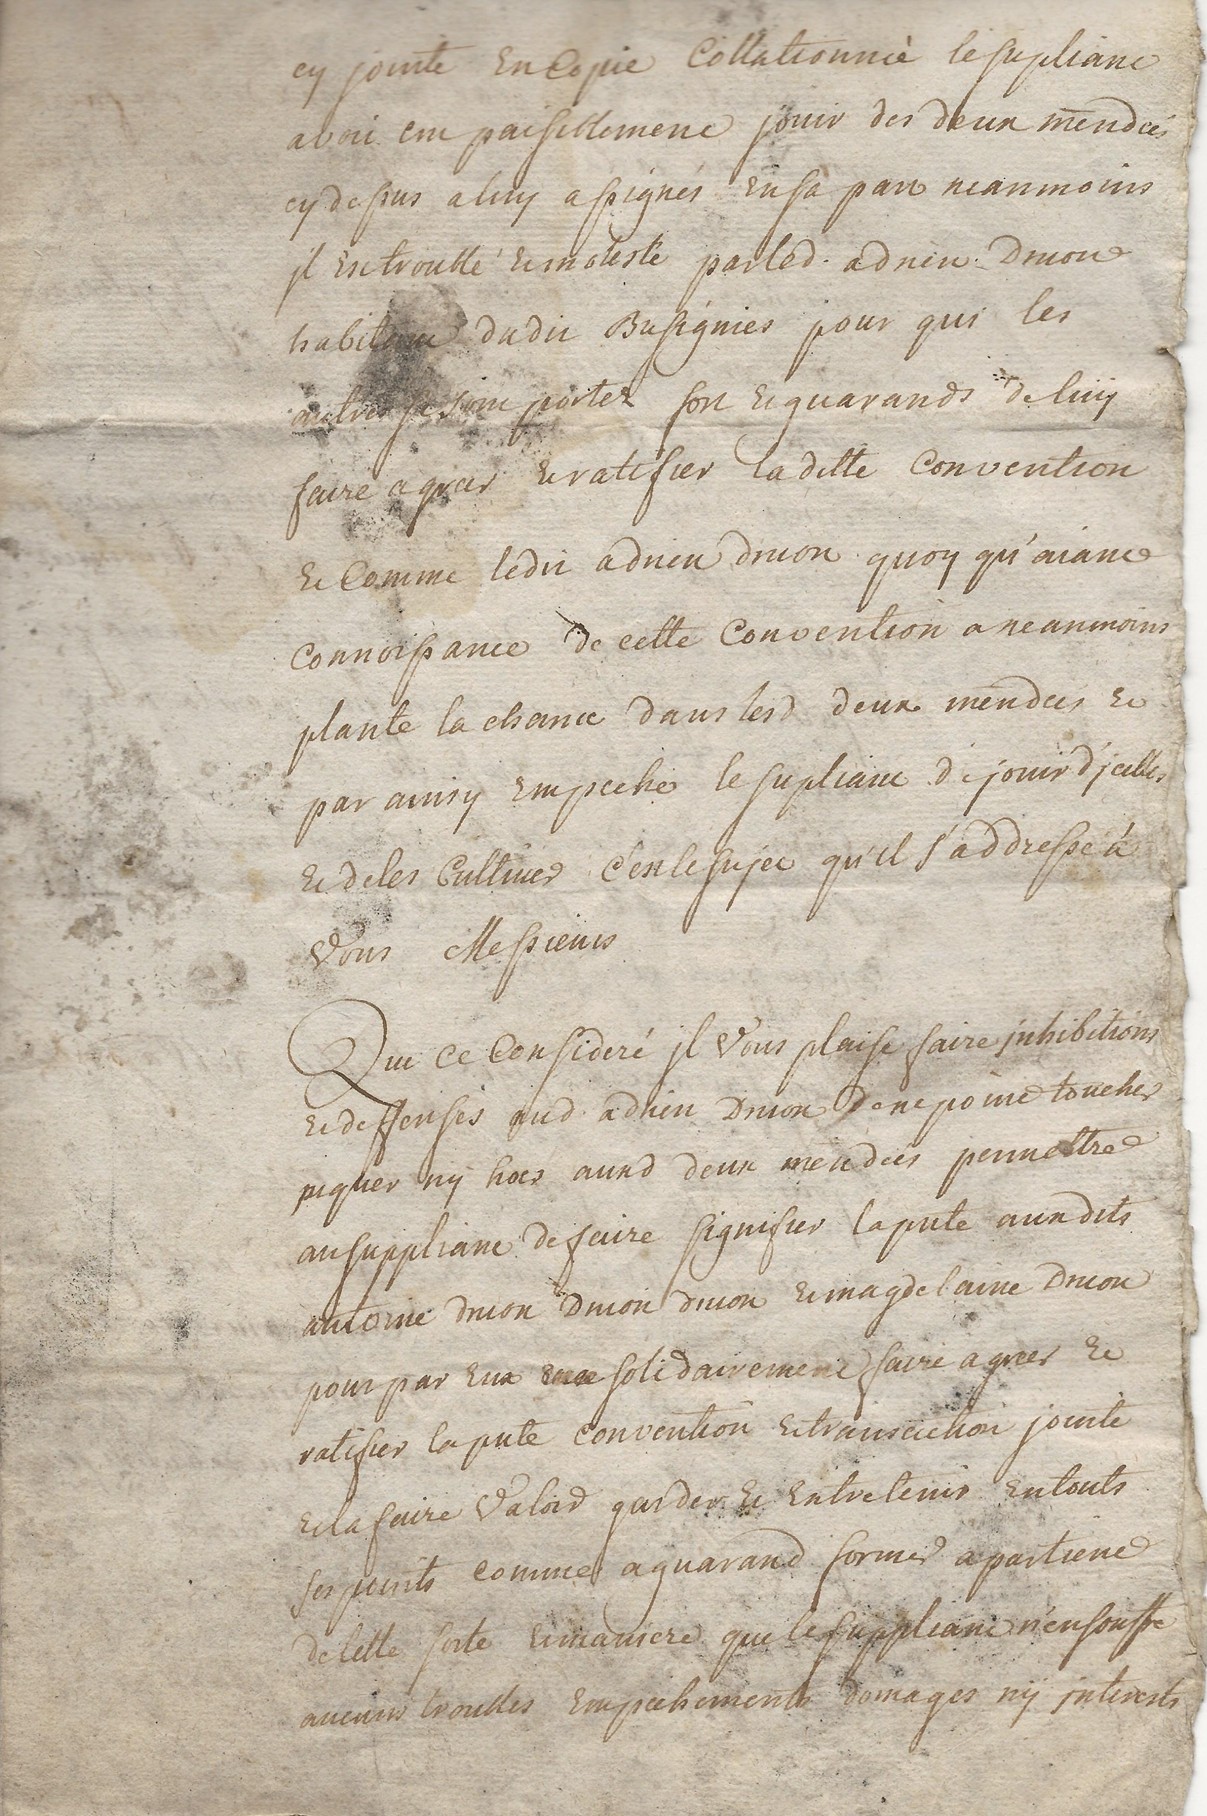 cy jointe En Copie Collationnée le supliant
avoit cru paisiblement jouir des deux mendées
cy dessus a luy assignés En sa part neanmoins
jl Est troublé Et molesté par led. adrien Druon
habitant dudit Busignies pour qui les
autres se sont portez fort Et guarands de luy
faire agréer Et ratifier la ditte Convention
Et Comme ledit adrien druon quoy qu'aiant
Connoissance de cette Convention a neanmoins
planté la chance dans lesd deux mendées Et
par ainsy Empeché le supliant de jouir d'jcelles
Et de les Cultiver c'est le sujet qu'il s'addresse à
Vous Messieurs
Que ce Consideré jl Vous plaise faire jnhibitions
Et deffenses aud. adrien Druon de ne point toucher
piquer ny hoer auxd deux mendées permettre
au suppliant de faire signifier la pnte aux dits
antoine druon Druon druon Et magdelaine Druon
pour par Eux solidairement faire agreer Et
ratifier la pnte convention Et transaction jointe
Et la faire Valoir garder Et Entretenir En touts
ses points comme a guarand formel apartient
de telle sorte Et maniere que le suppliant n'en souffre
aucuns troubles Empechements domages ny jnterests